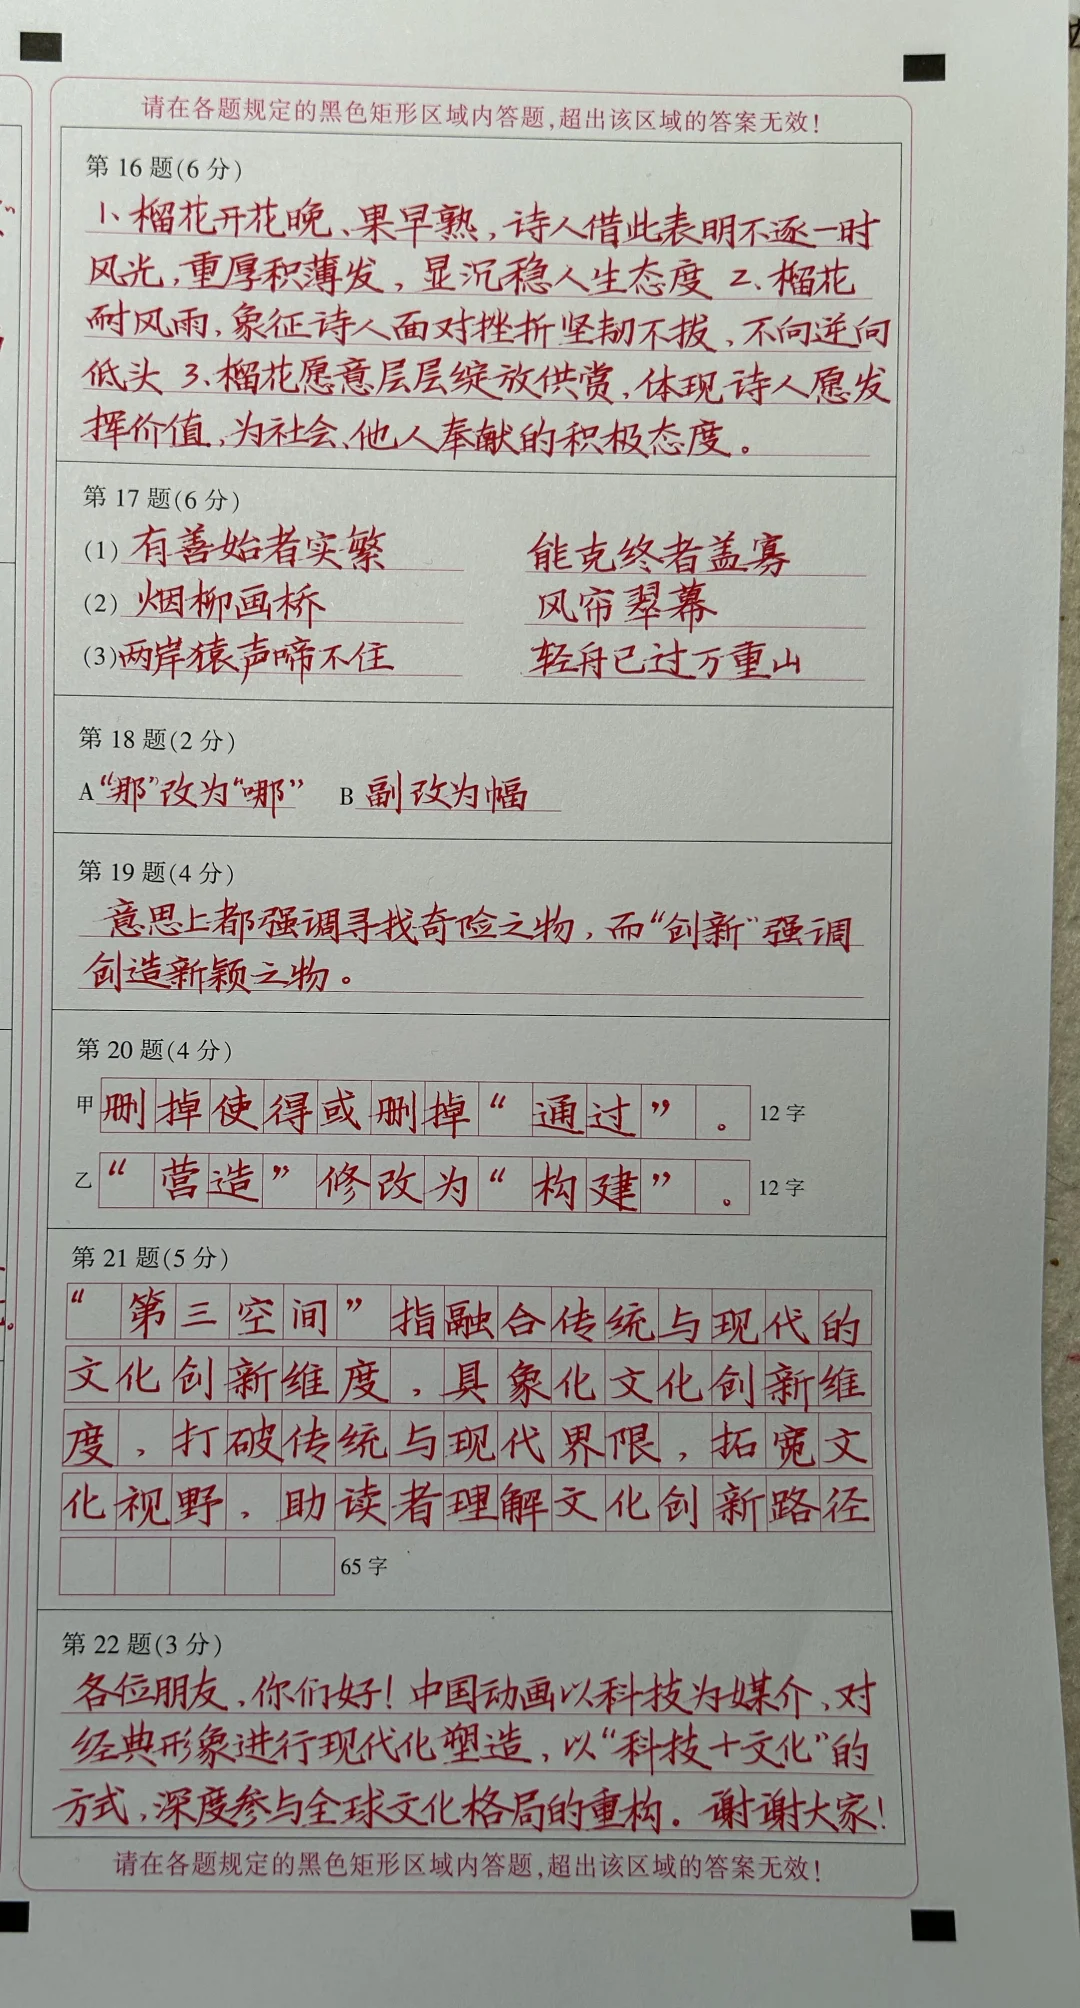 请在各题规定的黑色矩形区域内答题,超出该区域的答案无效!
第 16 题(6 分)
1、榴花开花晚、果早熟，诗人借此表明不逐一时
风光，重厚积薄发，显沉稳人生态度 2、榴花
耐风雨，象征诗人面对挫折坚韧不拔、不向逆向
低头 3、榴花愿意层层绽放供赏，体现诗人愿发
挥价值，为社会、他人奉献的积极态度。
第 17 题(6 分)
(1) 有善始者实繁 能克终者盖寡
(2) 烟柳画桥 风帘翠幕
(3) 两岸猿声啼不住 轻舟已过万重山
第 18 题(2 分)
A “那”改为“哪” B 副改为幅
第 19 题(4 分)
意思上都强调寻找奇险之物，而“创新”强调
创造新颖之物。
第 20 题(4 分)
甲 删掉使得或删掉“通过”。 12 字
乙 “营造”修改为“构建”。 12 字
第 21 题(5 分)
“第三空间”指融合传统与现代的
文化创新维度，具象化文化创新维
度，打破传统与现代界限，拓宽文
化视野，助读者理解文化创新路径
65 字
第 22 题(3 分)
各位朋友，你们好！中国动画以科技为媒介，对
经典形象进行现代化塑造，以“科技+文化”的
方式，深度参与全球文化格局的重构。谢谢大家！
请在各题规定的黑色矩形区域内答题,超出该区域的答案无效!